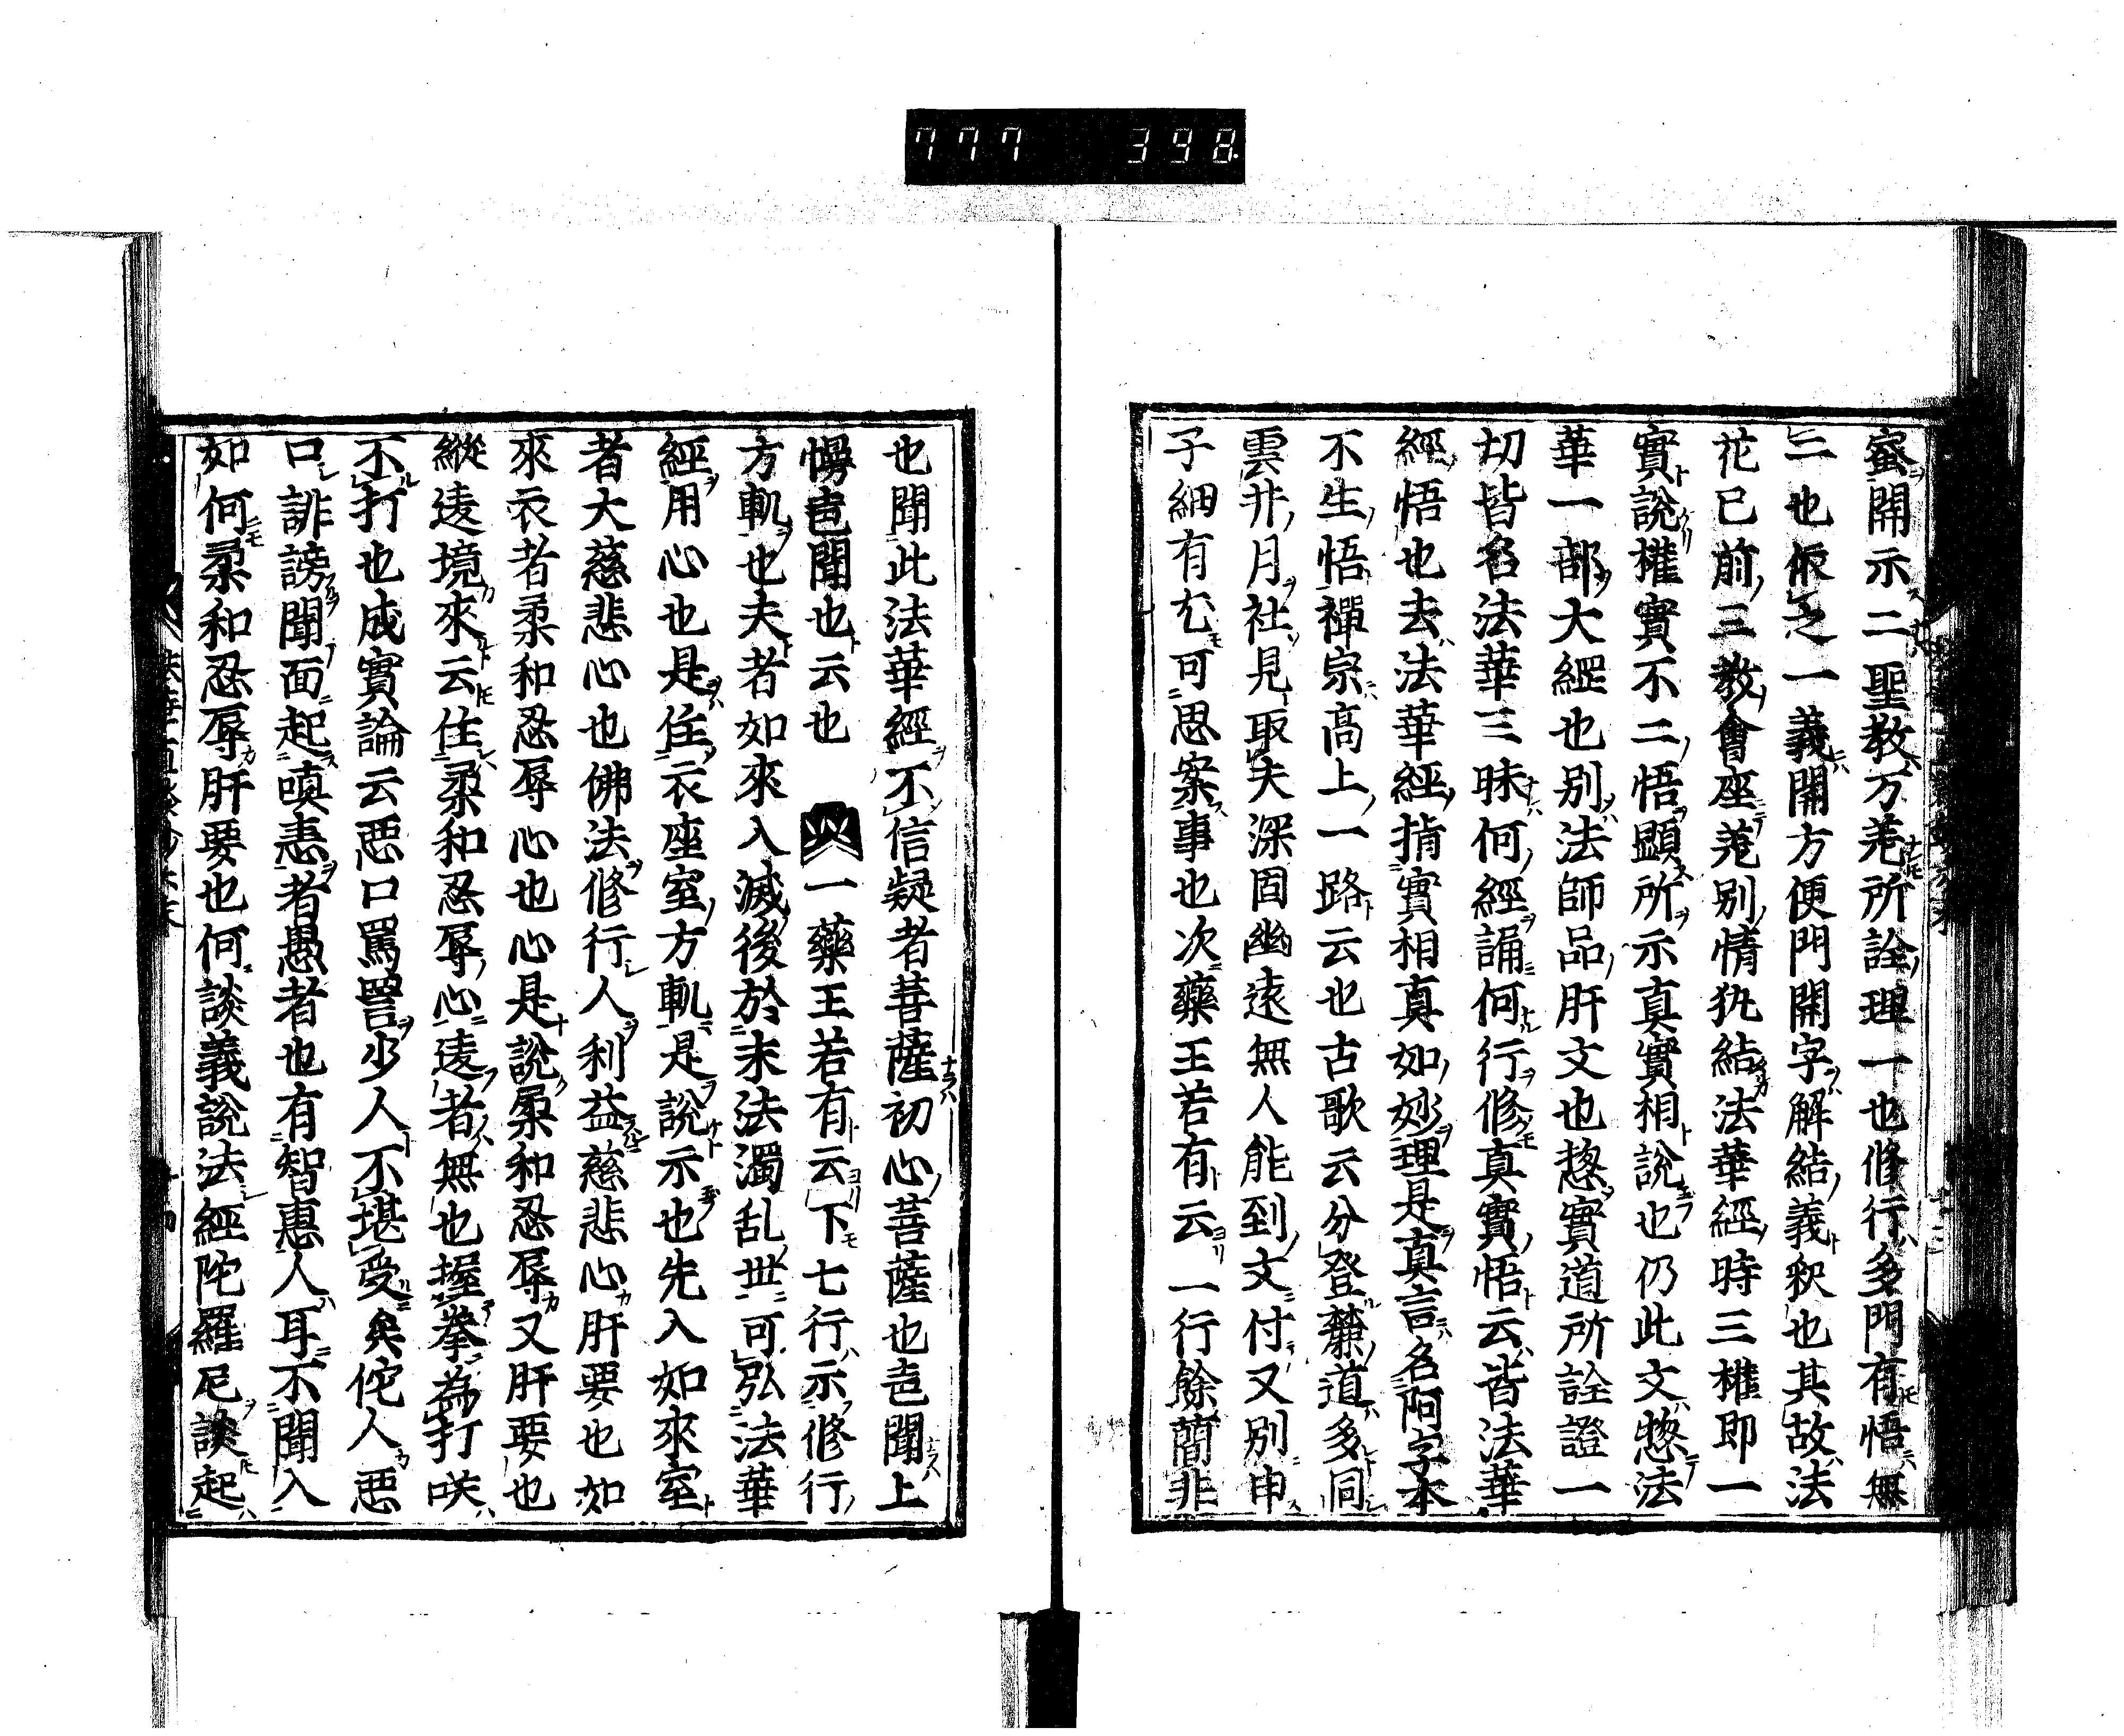 777 398
蜜開示二聖教万差所詮理一也修行多門有悟無
二也仮之一義開方便門開字解結義釈也其故法
花已前三教會座差別情執結法華經時三權即一
實說權實不二悟顯所示真實相說也仍此文惣法
華一部大經也別法師品肝文也惣實道所詮證一
切皆名法華三昧何經誦何行修真實悟云皆法華
經悟也去法華經指實相真如妙理是真言名阿字本
不生悟禪宗高上一路云也古歌云分登麓道多同
雲井月社見取夫深固幽遠無人能到文付又別申
子細有尤可思案事也次藥王若有云一行餘簡非
也聞此法華經不信疑者菩薩初心菩薩也声聞上
慢声聞也云也 一藥王若有云下七行示修行
方軌也夫者如來入滅後於末法濁乱世可弘法華
經用心也是住衣座室方軌是說示也先入如來室
者大慈悲心也佛法修行人利益慈悲心肝要也如
來衣者柔和忍辱心也心是說柔和忍辱又肝要也
縱違境來云住柔和忍辱心違者無也握拳為打咲
不打也成實論云惡口罵詈少人不堪受矣佗人惡
口誹謗聞面起嗔恚者愚者也有智惠人耳不聞入
如何柔和忍辱肝要也何談義說法經陀羅尼談起